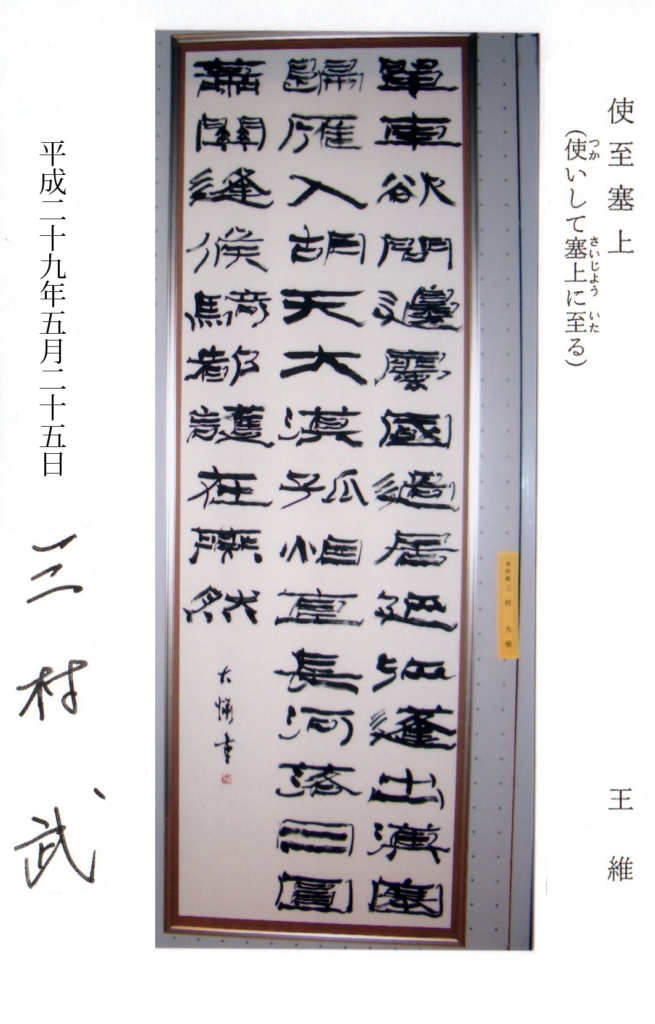 使至塞上
つか さいじよう いた
(使いして塞上に至る)
王維
單車欲問邊屬國過居延征蓬出漢塞
歸雁入胡天大漠孤烟直長河落日圓
蕭關逢候騎都護在燕然
大 書
三村 大
平成二十九年五月二十五日
三村武